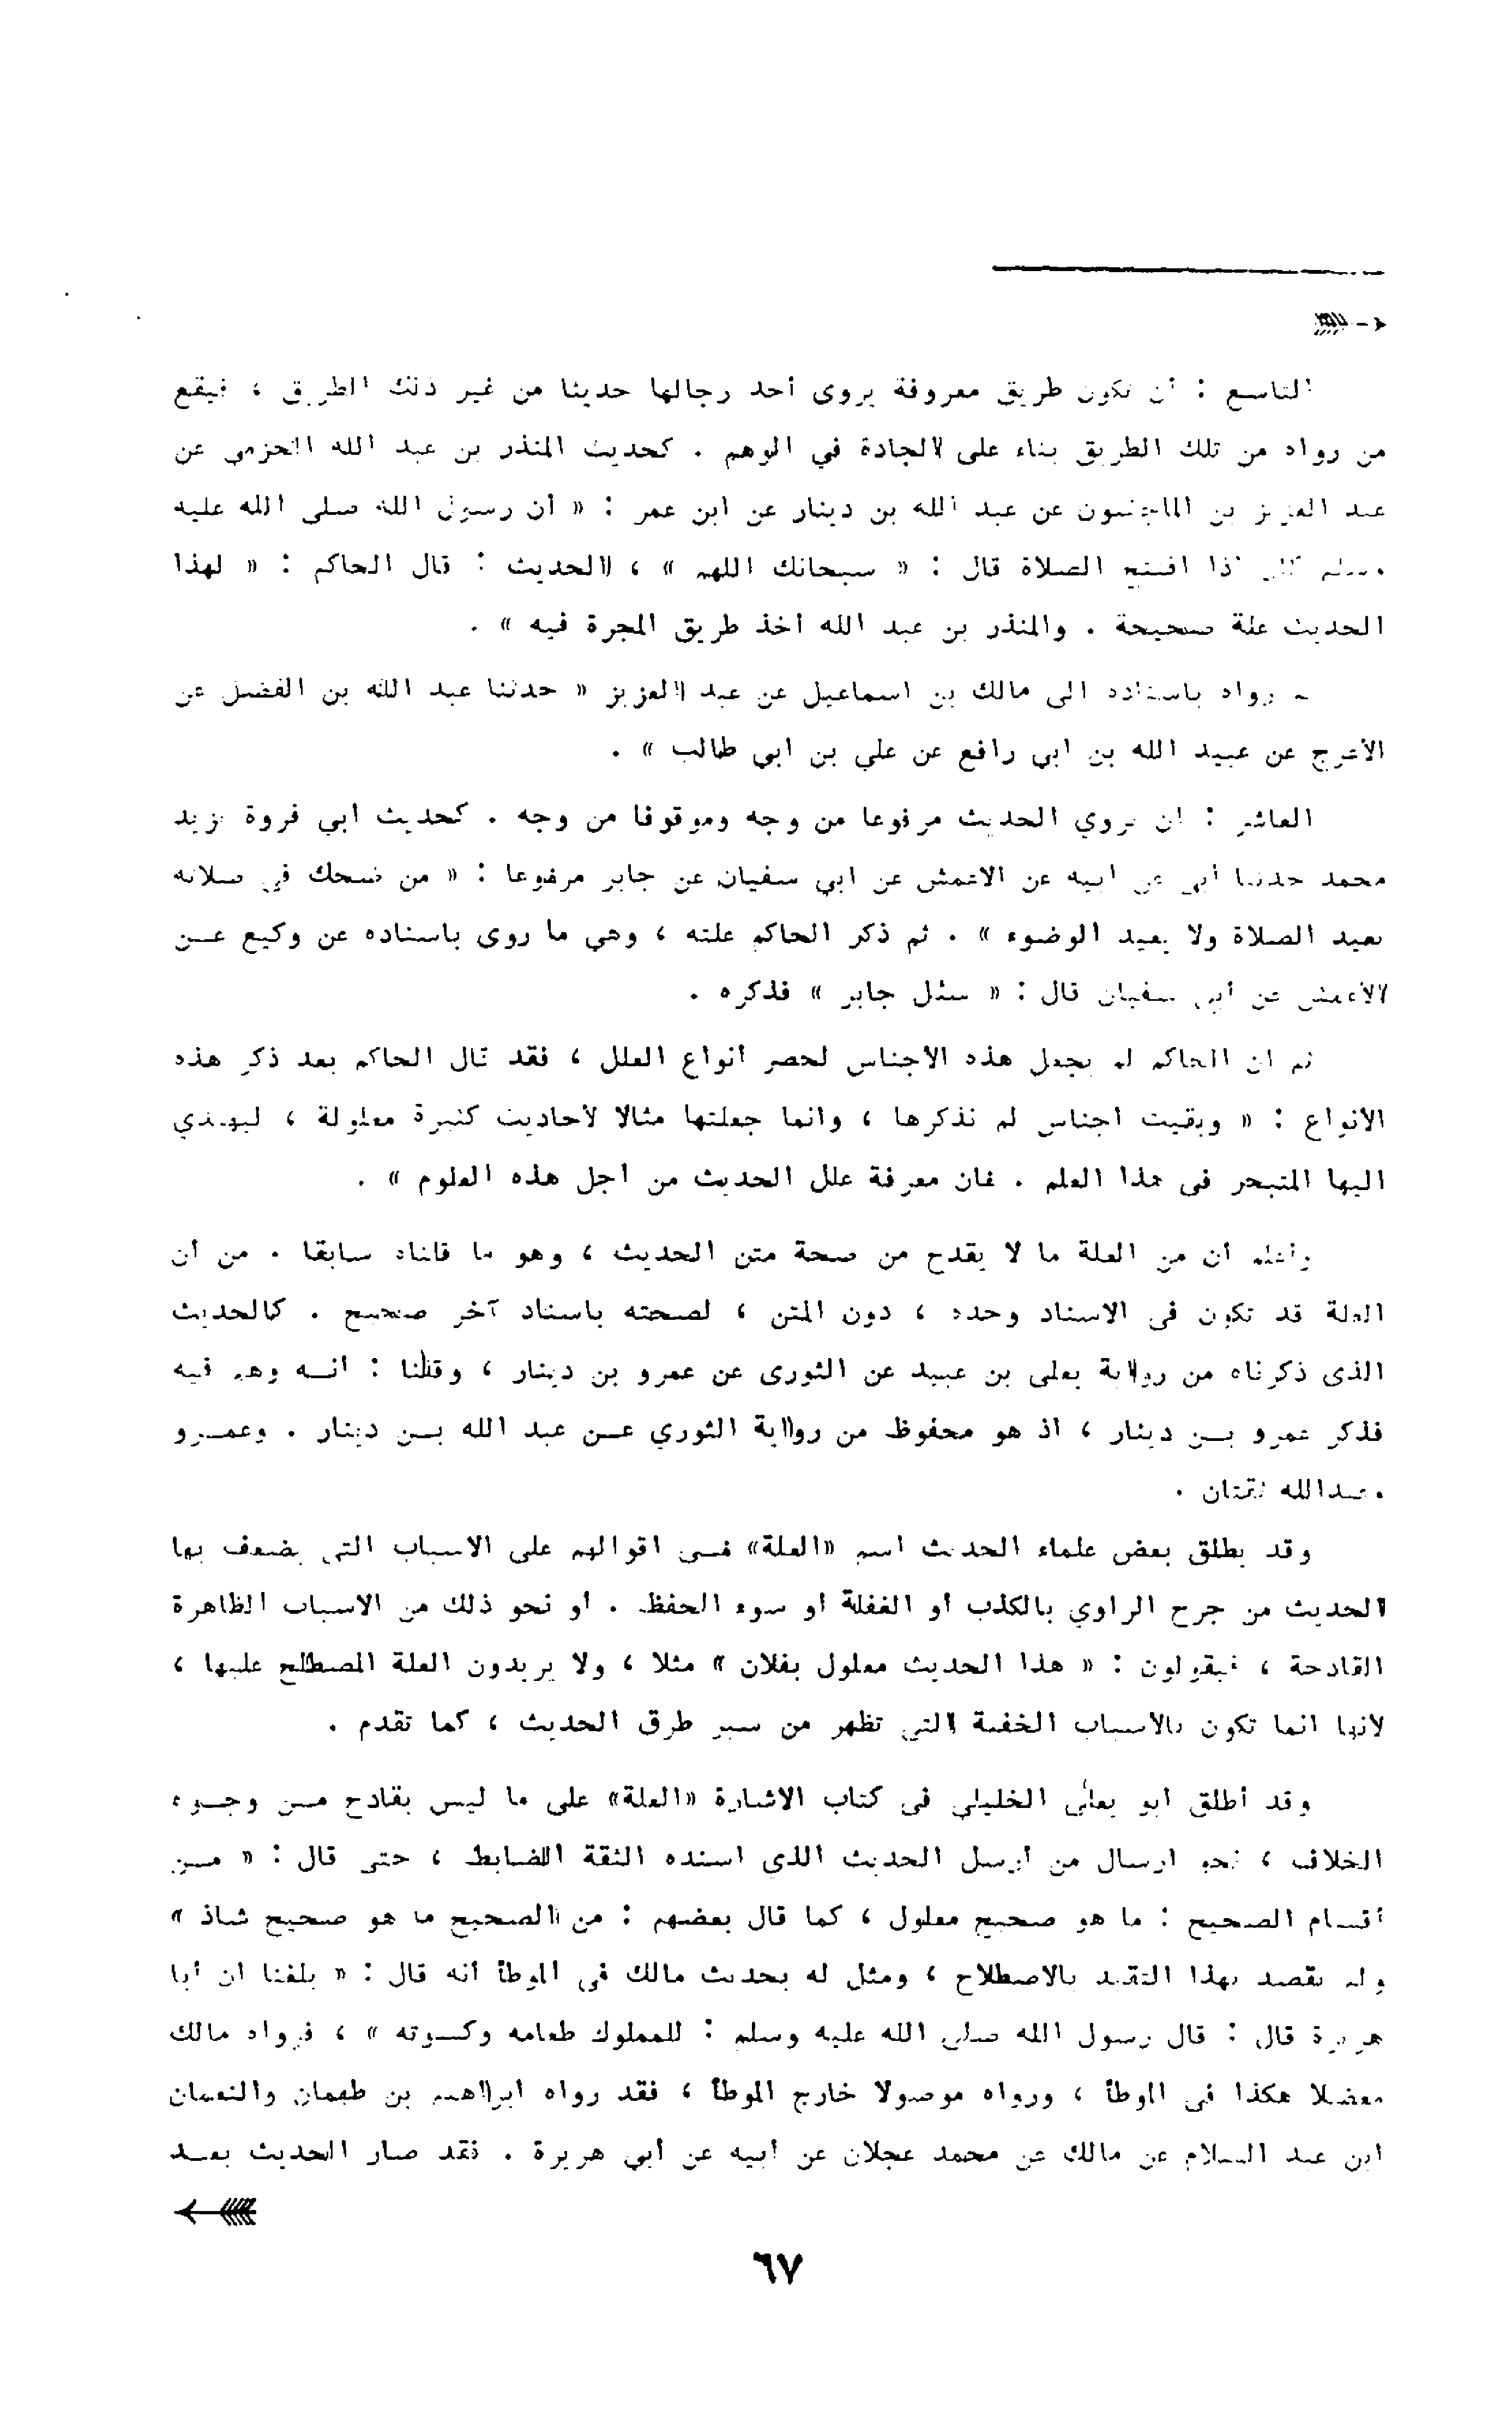 التاسع : أن تكون طريق معروفة يروى أحد رجالها حديثا من غير ذلك الطريق ، فيقع
من رواه من تلك الطريق بناء على الجادة في الوهم . كحديث المنذر بن عبد الله الحزمي عن
عبد العزيز بن الماجشون عن عبد الله بن دينار عن ابن عمر : « أن رسول الله صلى الله عليه
وسلم كان اذا افتتح الصلاة قال : « سبحانك اللهم » ، الحديث : قال الحاكم : « لهذا
الحديث علة صحيحة . والمنذر بن عبد الله أخذ طريق المجرة فيه » .
ـ رواه باسناده الى مالك بن اسماعيل عن عبد العزيز « حدثنا عبد الله بن الفضل عن
الأعرج عن عبيد الله بن ابي رافع عن علي بن ابي طالب » .
العاشر : ان يروي الحديث مرفوعا من وجه وموقوفا من وجه . كحديث ابي فروة يزيد
محمد حدثنا أبي عن ابيه عن الاعمش عن ابي سفيان عن جابر مرفوعا : « من ضحك في صلاته
يعيد الصلاة ولا يعيد الوضوء » . ثم ذكر الحاكم علته ، وهي ما روى باسناده عن وكيع عــن
الأعمش عن أبي سفيان قال : « سئل جابر » فذكره .
ثم ان الحاكم لم يجعل هذه الاجناس لحصر أنواع العلل ، فقد قال الحاكم بعد ذكر هذه
الانواع : « وبقيت اجناس لم نذكرها ، وانما جعلتها مثالا لأحاديث كثيرة معلولة ، ليهتدي
اليها المتبحر في هذا العلم . فان معرفة علل الحديث من اجل هذه العلوم » .
وأعلم أن من العلة ما لا يقدح من صحة متن الحديث ، وهو ما قلناه سابقا . من أن
العلة قد تكون في الاسناد وحده ، دون المتن ، لصحته باسناد آخر صحيح . كالحديث
الذى ذكرناه من رواية يعلى بن عبيد عن الثورى عن عمرو بن دينار ، وقلنا : انــه وهم فيه
فذكر عمرو بــن دينار ، اذ هو محفوظ من رواية الثوري عــن عبد الله بــن دينار . وعمــرو
وعبدالله ثقتان .
وقد يطلق بعض علماء الحديث اسم «العلة» فــي اقوالهم على الاسباب التي يضعف بها
الحديث من جرح الراوي بالكذب أو الغفلة او سوء الحفظ . او نحو ذلك من الاسباب الظاهرة
القادحة ، فيقولون : « هذا الحديث معلول بفلان » مثلا ، ولا يريدون العلة المصطلح عليها ،
لانها انما تكون بالاسباب الخفية التي تظهر من سبر طرق الحديث ، كما تقدم .
وقد أطلق ابو يعلى الخليلي في كتاب الاشارة «العلة» على ما ليس بقادح مــن وجــوه
الخلاف ، نحو ارسال من أرسل الحديث الذي اسنده الثقة الضابط ، حتى قال : « مــن
أقسام الصحيح : ما هو صحيح معلول ، كما قال بعضهم : من الصحيح ما هو صحيح شاذ »
ولم يقصد بهذا التقيد بالاصطلاح ، ومثل له بحديث مالك في الموطأ أنه قال : « بلغنا ان أبا
هريرة قال : قال رسول الله صلى الله عليه وسلم : للمملوك طعامه وكسوته » ، فرواه مالك
معضلا هكذا في الموطأ ، ورواه موصولا خارج الموطأ ، فقد رواه ابراهيم بن طهمان والنعمان
ابن عبد السلام عن مالك عن محمد عجلان عن أبيه عن أبي هريرة . فقد صار الحديث بعــد
٦٧